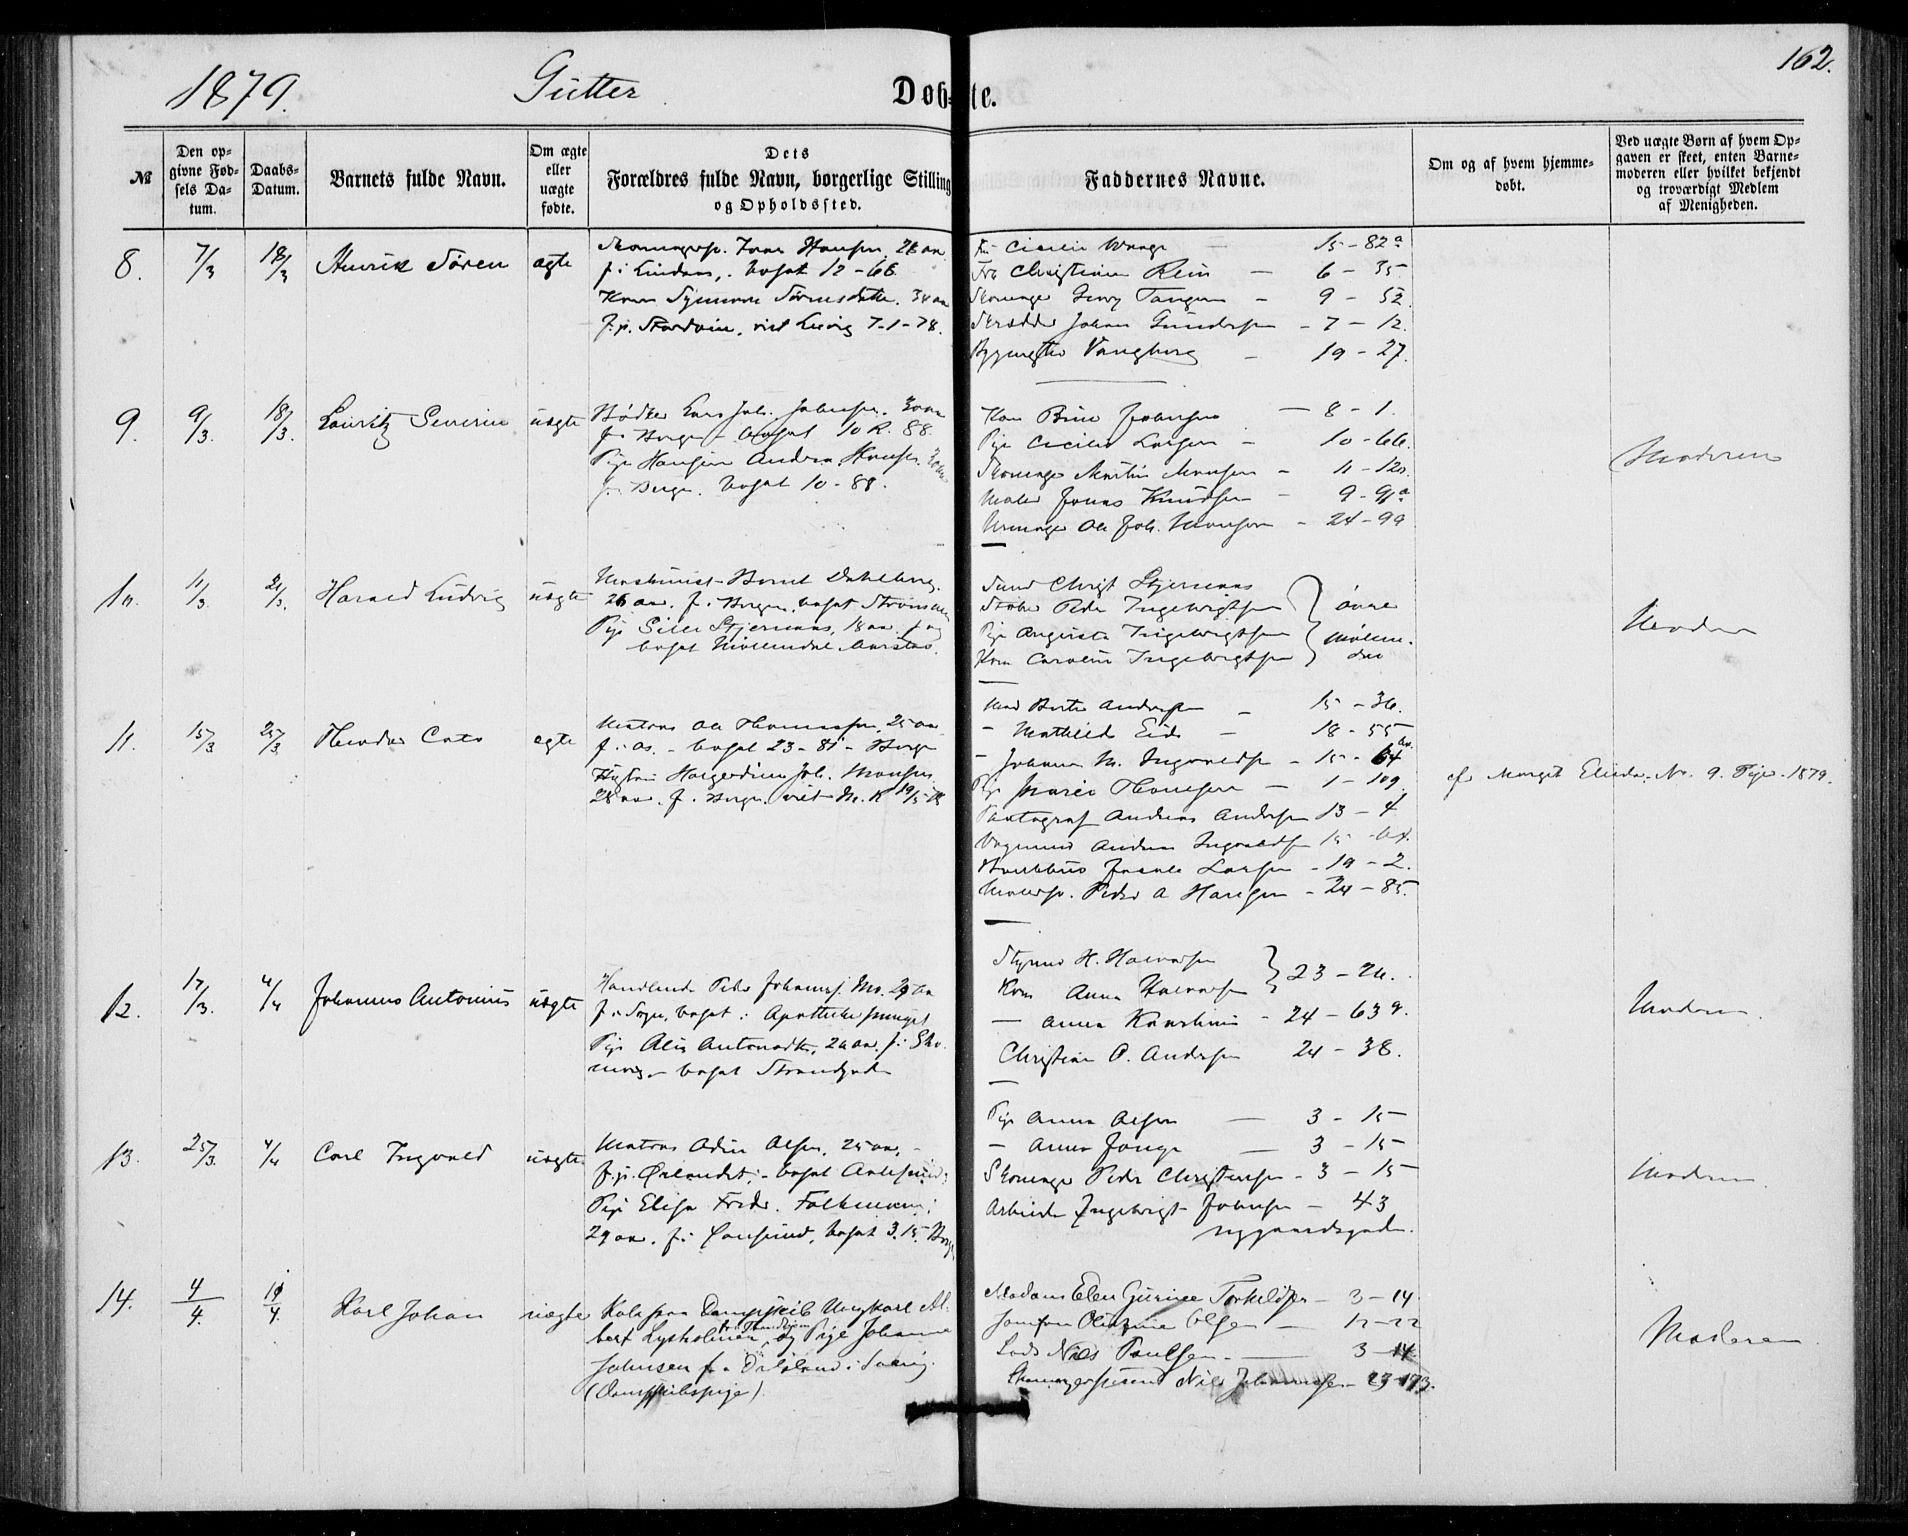 1879. Gutter Døb-te. 162.
№
Den op-
givne Fød-
sels Da-
tum.
Daabs-
Datum.
Barnets fulde Navn.
Om ægte
eller
uægte
fødte.
Dets
Forældres fulde Navn, borgerlige Stilling
og Opholdssted.
Faddernes Navne.
Om og af hvem hjemme-
døbt.
Ved uægte Børn af hvem Op-
gaven er skeet, enten Barne-
moderen eller hvilket bekjendt
og troværdigt Medlem
af Menigheden.
8. 7/3 18/3 Henrik Søren ægte
Hansen, 28 aar
f. i Lindaas, bosat 12-66
Kone Synneve Sørensdatter. 34 aar
f. p. Stordøen, viet Leirvig 7-1-78.
Cicilie Waage 15-82a
Christiane Rein - 6-35
Skomager Georg Tangen - 9-52
Skrædder Johan Gundersen - 7-12.
Vangberg - 19-27.
9. 9/3. 18/3. Lauritz Severin uægte
Bødker Lars Joh. Johnsen. 30 aar
f. i Bergen - bosat 10 R. 88.
Pige Hansine Andrea Hansen.
f. i Bergen. bosat 10-88.
Kone Johnsen - 8-1.
Pige Cicilie Larsen - 10-66.
Skomager Martin Monsen - 11-12
Maler Jonas Knudsen - 9-91a
Ole Joh. Monsen - 24-99
Moderen
10. 11/3. 21/3. Harald Ludvig uægte
Maskinist Bernt Dahlberg.
26 aar. f. i Bergen. bosat
Pige Stjernaas, 18 aar f. og
bosat Møllendal Aarstad.
Christ Stjernaas
Peder Ingebrigtsen
Pige Augusta Ingebrigtsen
Kone Caroline Ingebrigtsen
øvre
Møllen-
dal
Moderen
11. 15/3 25/3 Theodor Cato ægte
Matros Ole Thomassen, 25 aar
f. i Os. - bosat 23-81 - Bergen
Joh. Monsen
28 aar. f. i Bergen. viet M. K 19/5
Mad Berte Andersen - 15-36.
- Mathilde Eide - 18-55
- Johanne M. Ingvaldsen - 15-64
Pige Marie Thomsen - 1-109
Andreas Andersen 13-4
Vognmand Andreas Ingvaldsen 15-64.
Larsen - 19-2.
Malersv. Peder A Hansen - 24-85.
cfr Margit Elida. No. 9. Piger. 1879.
12. 17/3. 4/4 Johannes Antonius uægte
Handlende Peder Johannes. Mo. 29 aar
f. i Sogn, bosat i Apotheker
Pige Alis Antonsdtr, 26 aar. f. i
bosat Strandgaden
Styrmd H. Halvorsen
Kone Anna Halvorsen
23-26.
- Anna Karstine - 24-639.
Christian A. Andersen 24-38.
Moderen.
13. 25/3. 4/4 Carl Ingvald uægte
Matros Odin Olsen, 25 aar, -
f. p. Ørlandet; - bosat Aalesund;
Pige Elise Fredr. Falkmann;
29 aar. f. i bosat 3.15. Bergen
Pige Anna Olsen - 3-15
- Anna Jonge - 3-15
Skomager Peder Christensen - 3-15
Arbeider Ingebrigt Johnsen - 43
Nygaardsgaden.
Moderen.
14. 4/4. 11/4. Karl Johan uægte
Kok paa Dampskib Ungkarl Al-
bert Lysholmer fra Throndhjem og Pige Johanne
Johnsen fra
(Dampskibspige).
Madam Elen Gurine Torkelsen - 3-14
Jomfru Olsen - 12-22
Lods Nils Paulsen. - 3-14
Nils Johannesen - 23-173.
Moderen